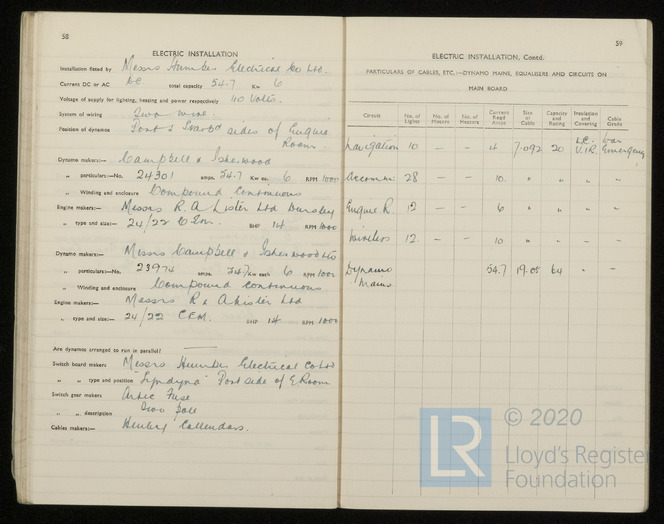 58
ELECTRIC INSTALLATION
Installation fitted by Messrs Humber Electrical Co Ltd.
Current DC or AC DC total capacity 54.7 Kw 6
Voltage of supply for lighting, heating and power respectively 110 Volts.
System of wiring Two wire.
Position of dynamos Port & Starbd sides of Engine
Room.
Dynamo makers:— Campbell & Isherwood
„ particulars:—No. 24301 amps. 54.7 Kw ea. 6 RPM 1000
„ Winding and enclosure Compound Continuous
Engine makers:— Messrs R. A Lister Ltd Dursley
„ type and size:— 24/22 BHP 14 RPM 1000
Dynamo makers:— Messrs Campbell & Isherwood Ltd
„ particulars:—No. 23974 amps. 54.7 Kw each 6 RPM 1000
„ Winding and enclosure Compound Continuous
Engine makers:— Messrs R & A Lister Ltd
„ type and size:— 24/22 C.F.M. BHP 14 RPM 1000
Are dynamos arranged to run in parallel?
Switch board makers Messrs Humber Electrical Co Ltd
„ „ type and position "Lyndyna" Port side of E Room
Switch gear makers Artic Fuse
„ „ description Two Pole
Cables makers:— Henley Callendars.
59
ELECTRIC INSTALLATION, Contd.
PARTICULARS OF CABLES, ETC.—DYNAMO MAINS, EQUALISERS AND CIRCUITS ON
MAIN BOARD
Circuit No. of Lights No. of Motors No. of Heaters Current Read Amps Size of Cable Capacity and Rating Insulation and Covering Cable Grade
Navigation 10 — — 4 7.092 20 L.C. V.I.R. War Emergency
Accomm 28 — — 10 „ „ „ „
Engine R. 12 — — 6 „ „ „ „
Wireless 12 — — 10 „ „ „ „
Dynamo Mains 54.7 19.05 64 „ „
© 2020
LR
Lloyd's Register
Foundation